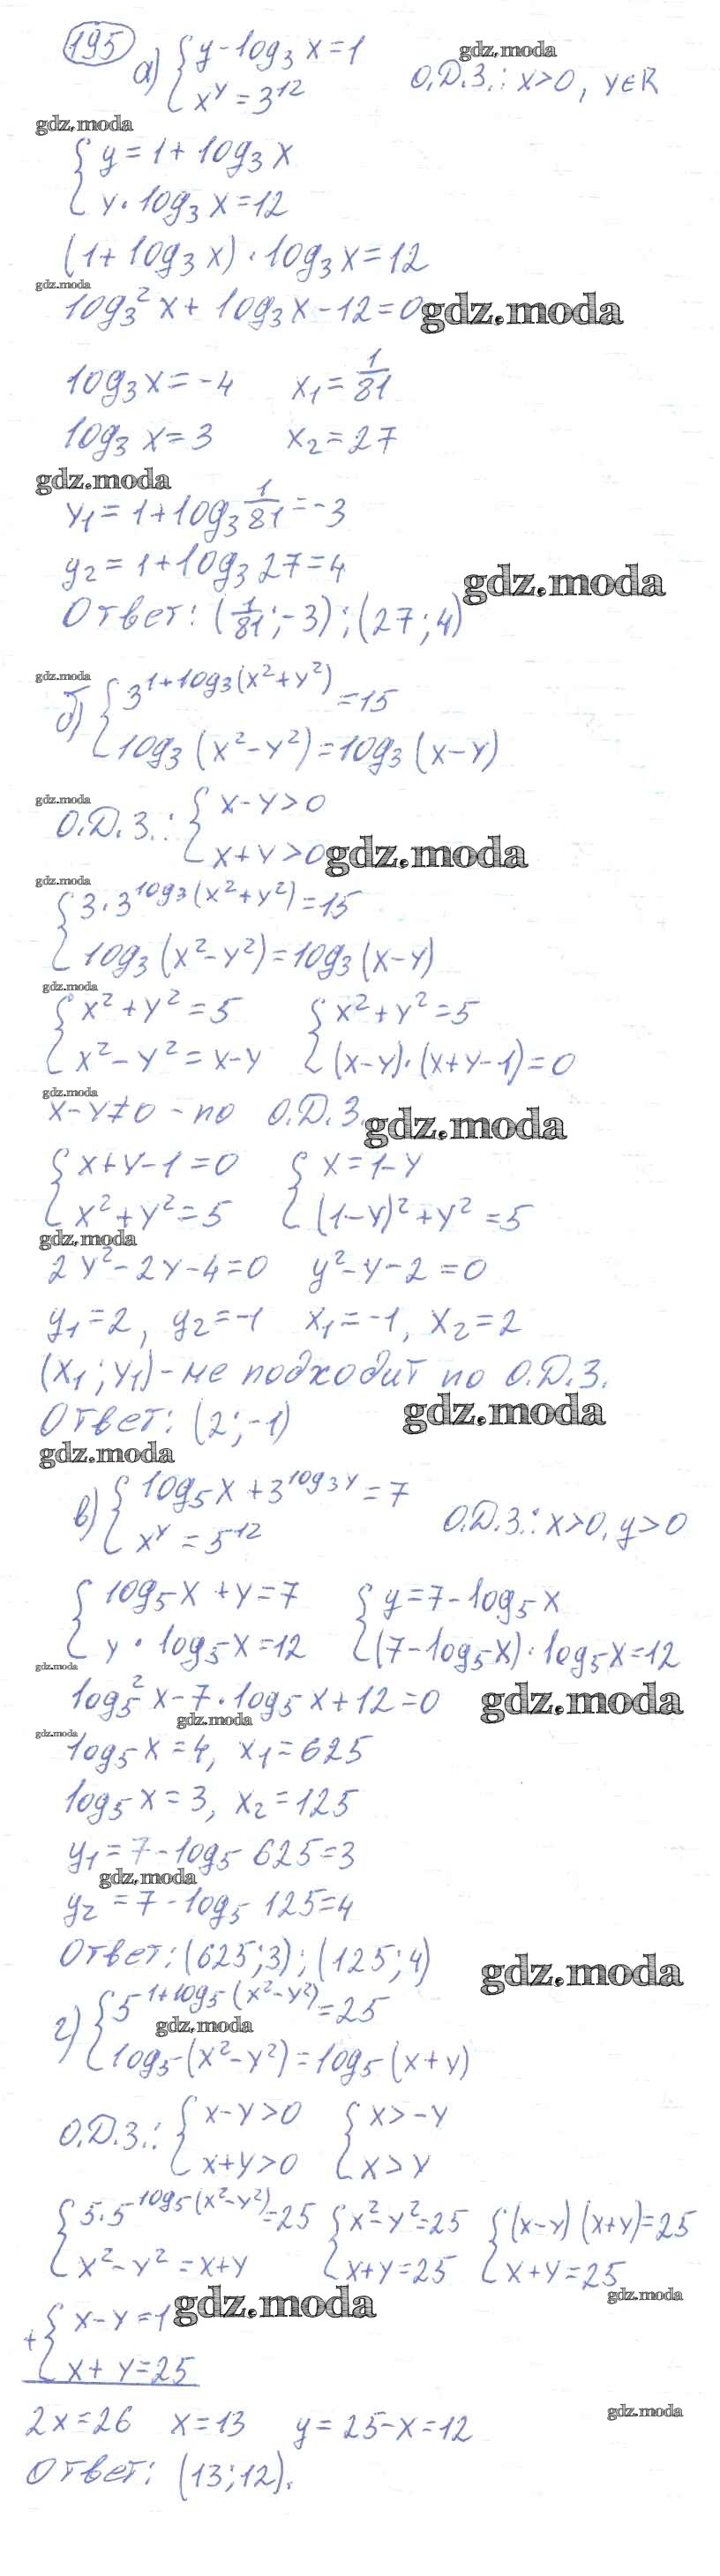 195
а) { y - log₃ x = 1
{ x^y = 3^12
О.Д.З.: x>0, y∈R
gdz.moda
gdz.moda
{ y = 1 + log₃ x
{ y · log₃ x = 12
(1 + log₃ x) · log₃ x = 12
gdz.moda
log₃² x + log₃ x - 12 = 0
gdz.moda
log₃ x = -4 x₁ = 1/81
log₃ x = 3 x₂ = 27
gdz.moda
y₁ = 1 + log₃ 1/81 = -3
y₂ = 1 + log₃ 27 = 4
gdz.moda
Ответ: (1/81; -3); (27; 4)
gdz.moda
б) { 3^(1+log₃(x²+y²)) = 15
{ log₃ (x²-y²) = log₃ (x-y)
gdz.moda
О.Д.З.: { x-y>0
{ x+y>0
gdz.moda
gdz.moda
{ 3·3^(log₃(x²+y²)) = 15
{ log₃ (x²-y²) = log₃ (x-y)
gdz.moda
{ x²+y² = 5 { x²+y² = 5
{ x²-y² = x-y { (x-y)·(x+y-1) = 0
gdz.moda
x-y≠0 - по О.Д.З.
gdz.moda
{ x+y-1 = 0 { x = 1-y
{ x²+y² = 5 { (1-y)²+y² = 5
gdz.moda
2y²-2y-4=0 y²-y-2=0
y₁=2, y₂=-1 x₁=-1, x₂=2
(x₁; y₁) - не подходит по О.Д.З.
Ответ: (2; -1)
gdz.moda
gdz.moda
в) { log₅ x + 3^(log₃ y) = 7
{ x^y = 5^12
О.Д.З.: x>0, y>0
{ log₅ x + y = 7 { y = 7 - log₅ x
{ y · log₅ x = 12 { (7 - log₅ x) · log₅ x = 12
gdz.moda
log₅² x - 7·log₅ x + 12 = 0
gdz.moda
gdz.moda
gdz.moda
log₅ x = 4, x₁ = 625
log₅ x = 3, x₂ = 125
y₁ = 7 - log₅ 625 = 3
gdz.moda
y₂ = 7 - log₅ 125 = 4
Ответ: (625; 3); (125; 4)
gdz.moda
г) { 5^(1+log₅(x²-y²)) = 25
gdz.moda
{ log₅ (x²-y²) = log₅ (x+y)
О.Д.З.: { x-y>0 { x>-y
{ x+y>0 { x>y
{ 5·5^(log₅(x²-y²)) = 25 { x²-y² = 25 { (x-y)(x+y) = 25
{ x²-y² = x+y { x+y = 25 { x+y = 25
gdz.moda
+ { x-y = 1
gdz.moda
{ x+y = 25
2x = 26 x = 13 y = 25-x = 12
gdz.moda
Ответ: (13; 12).